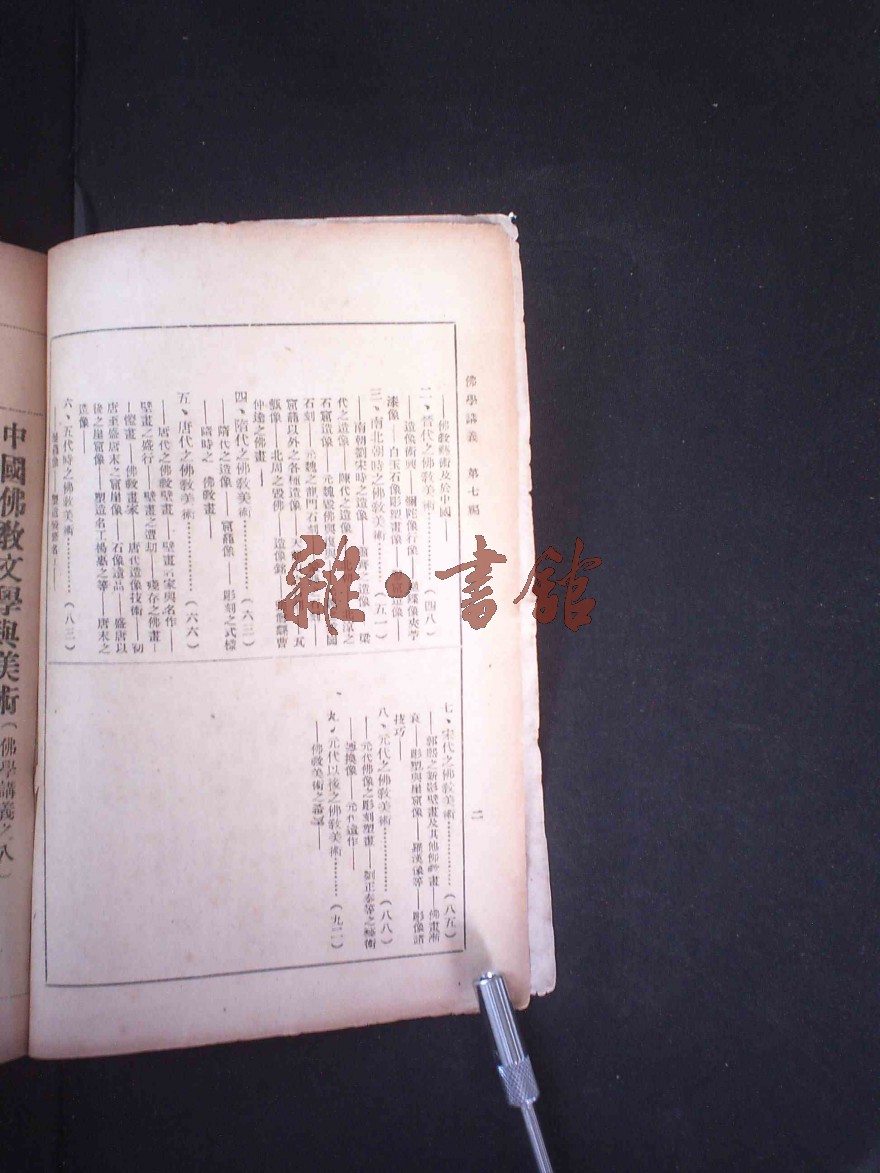 佛學講義　第七編
二
——佛教藝術及於中國——
二、晉代之佛教美術…………(四八)
——造像術興——彌陀像行像——像夾苧
漆像——白玉石像彫塑畫像——造像——
三、南北朝時之佛教美術…………(五一)
——南朝劉宋時之造像——造像——梁
代之造像——陳代之造像——
石窟造像——元魏毀佛與復興
石刻——元魏之龍門石刻——
窟龕以外之各種造像——
甎像——北周之毀佛——造像錄——曹
仲達之佛畫——
四、隋代之佛教美術…………(六三)
——隋代之造像——窟龕像——彫刻之式樣
——隋時之佛教畫——
五、唐代之佛教美術…………(六六)
——唐代之佛教壁畫——壁畫大家與名作——
壁畫之盛行——壁畫之遭劫——殘存之佛畫——
——佛教畫家——唐代造像技術——初
唐至盛唐末之窟崖像——石像遺品——盛唐以
後之崖窟像——塑造名工楊惠之等——唐末之
造像——
六、五代時之佛教美術…………(八三)
七、宋代之佛教美術…………(八五)
——郭熙之新影壁畫及其他佛畫——佛畫漸
衰——彫塑與崖窟像——羅漢像等——彫像諸
技巧——
八、元代之佛教美術…………(八八)
——元代佛像之彫刻塑畫——劉正奉等之藝術
——摶換像——元代遺作——
九、元代以後之佛教美術…………(九二)
——佛教美術之
中國佛教文學與美術(佛學講義之八)
雜·書館